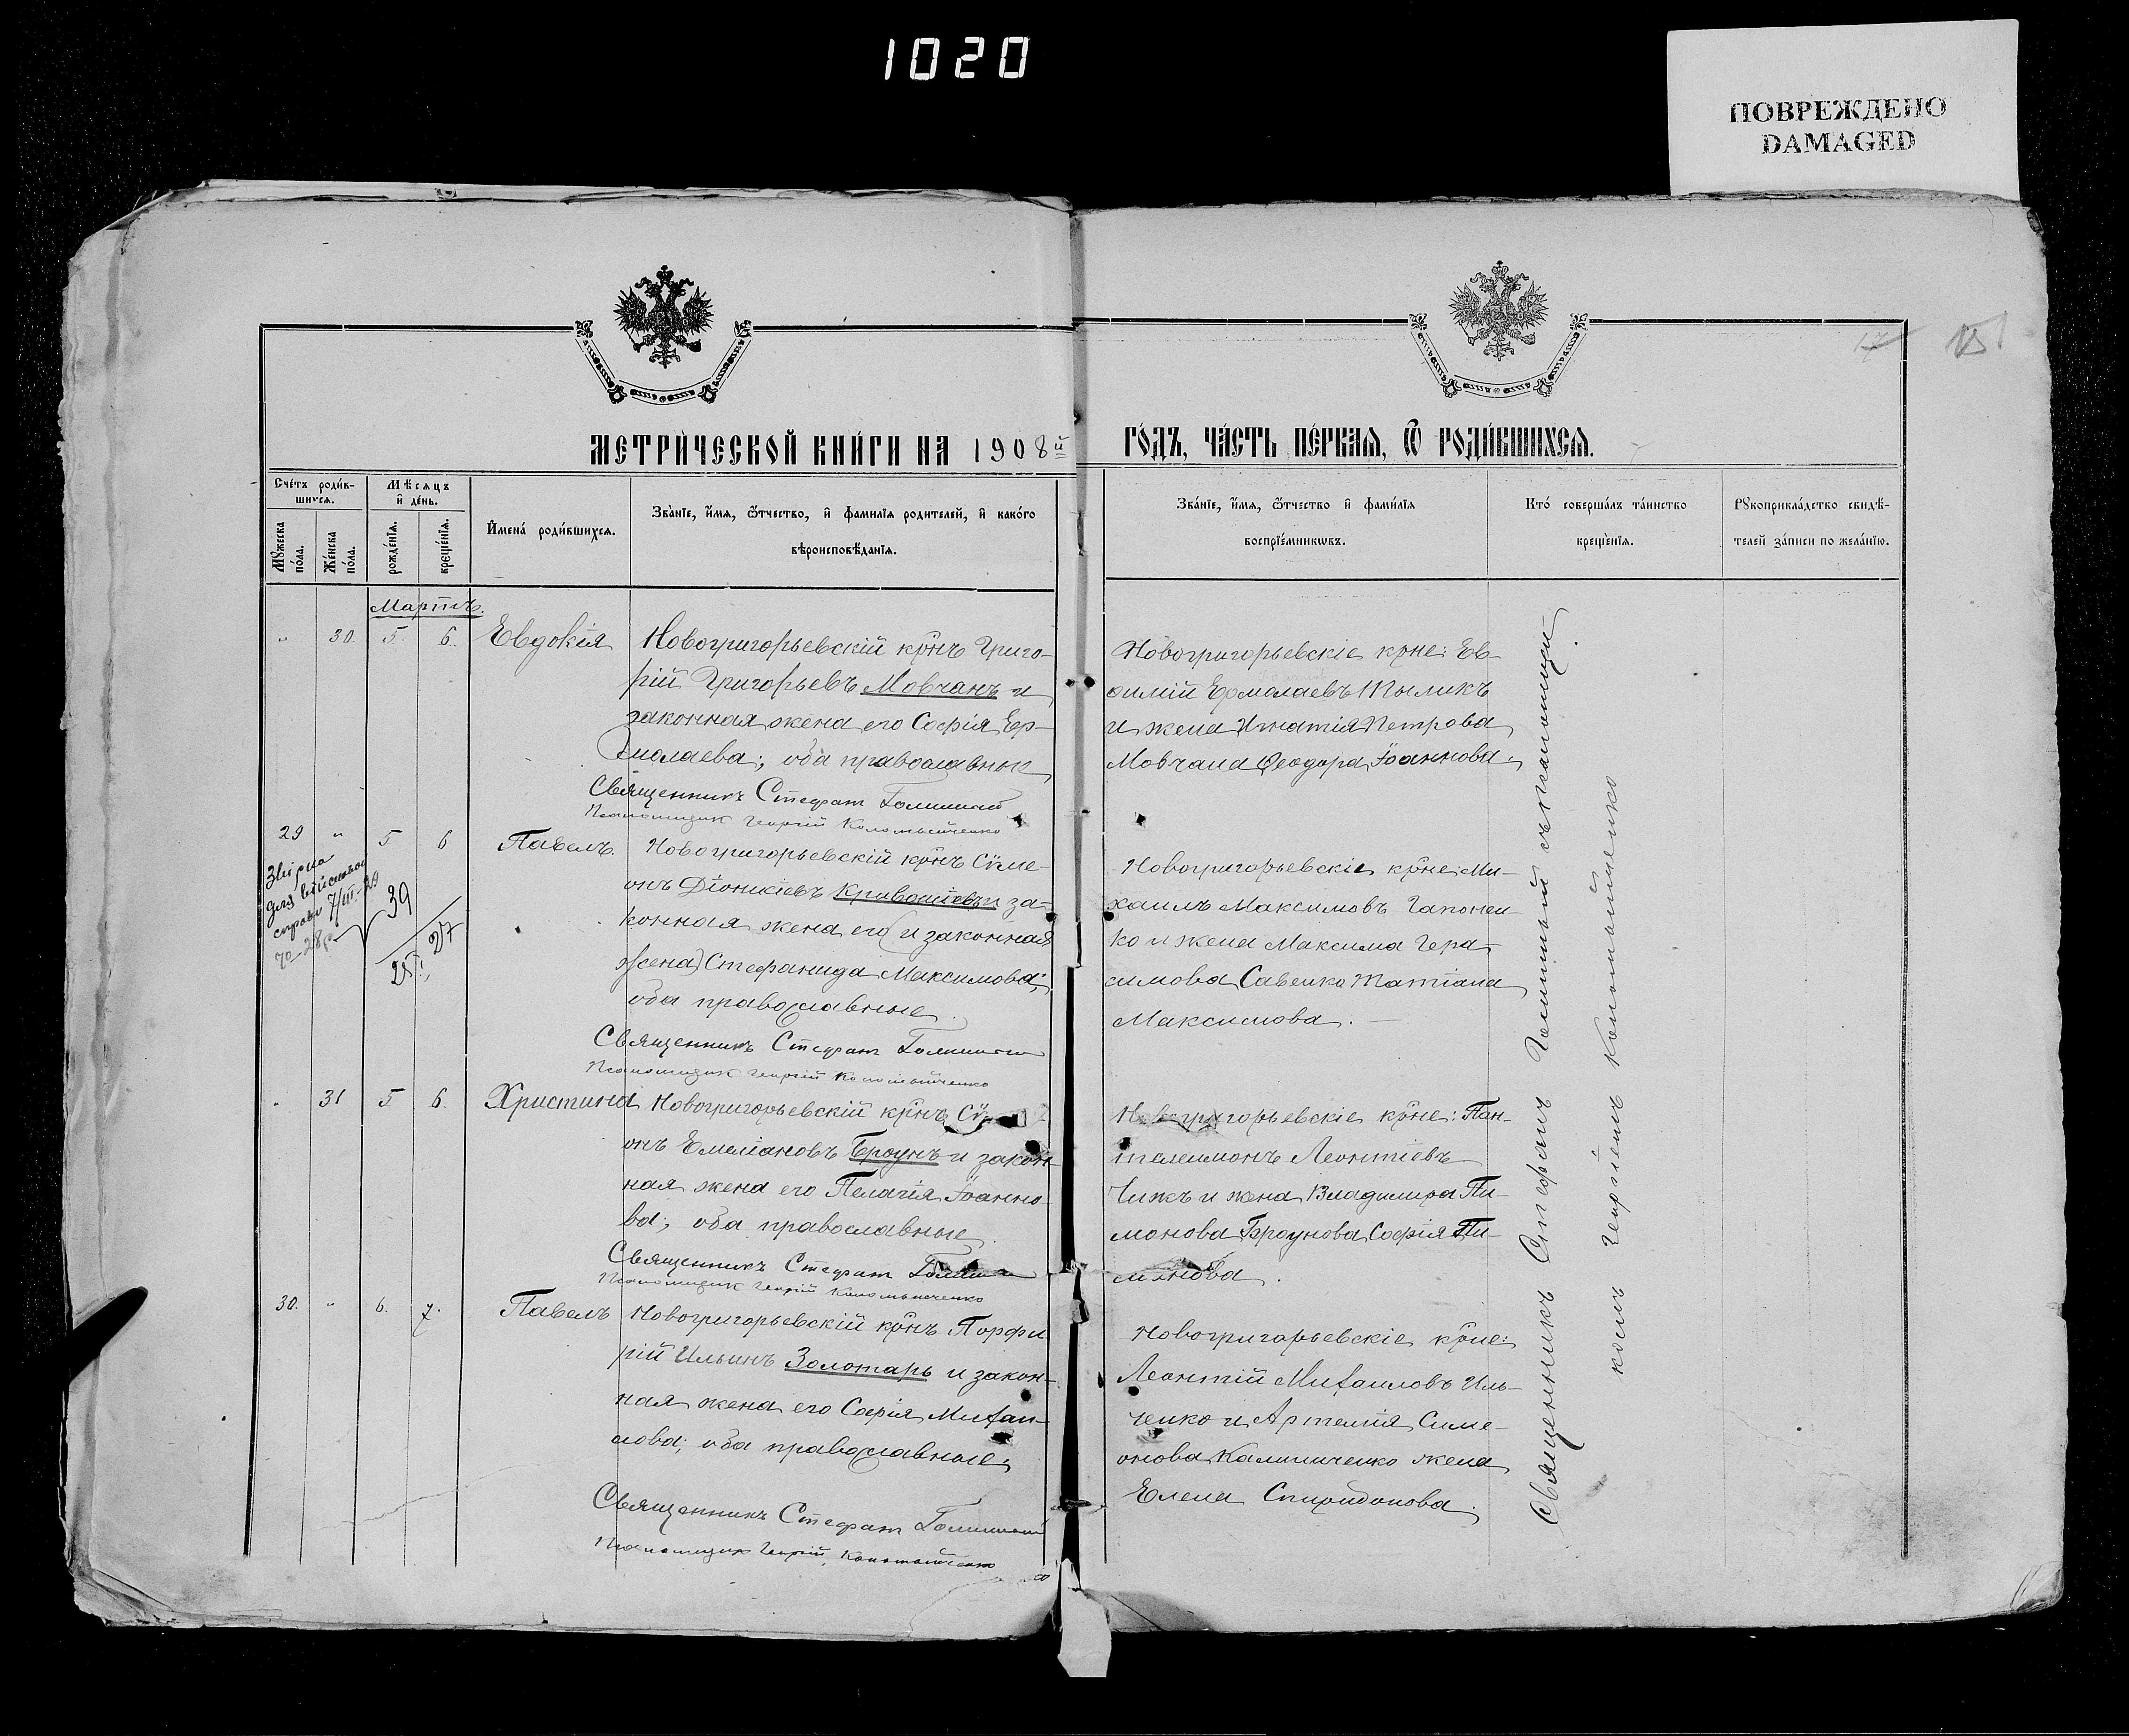 1020
ПОВРЕЖДЕНО
DAMAGED
МЕТРИ́ЧЕСКОЙ КНИ́ГИ НА 1908й
ГО́ДЪ, ЧА́СТЬ ПЕ́РВАЯ, Ѿ РОДИ́ВШИХСЯ.
17 15
Сче́тъ роди́в-
шихся.
Мꙋ́жеска
по́ла.
Же́нска
по́ла.
Мѣ́сяцъ
и҆ де́нь.
рожде́нїя.
креще́нїя.
И҆мена̀ роди́вшихся.
Зва́нїе, и҆́мя, ѻ҆́тчество, и҆ фами́лїя роди́телей, и҆ како́го
вѣроисповѣ́данїя.
Зва́нїе, и҆́мя, ѻ҆́тчество и҆ фами́лїя
воспрїе́мникѡвъ.
Кто́ соверша́лъ та́инство
креще́нїя.
Рꙋкоприкла́дство свидѣ́-
телей за́писи по жела́нїю.
Мартъ.
" 30. 5. 6. Евдокія
Новогригорьевскій крнъ Григо-
рій Григорьевъ Мовчанъ и
законная жена его Софія Ер-
молаева; оба православные
Священникъ Стефанъ
Псаломщик Георгій Коломыйченко
Новогригорьевскіе крне: Ев-
фимій Ермолаевъ Тыликъ
и жена Игнатія Петрова
Мовчана Феодора Іоаннова.
29 " 5 6 Павелъ.
Звірка
для військової
справи 7/III-29
39
27
Новогригорьевскій крнъ Сѵме-
онъ Діонисіевъ Кривошіевъ и за-
конная жена его (и законная
жена) Стефанида Максимова;
оба православные.
Священникъ Стефанъ
Псаломщик Георгій Коломыйченко
Новогригорьевскіе крне: Ми-
хаилъ Максимовъ Гапонен-
ко и жена Максима Гера-
симова Савенко Татіана
Максимова. —
" 31 5 6. Христина
Новогригорьевскій крнъ Сѵ
онъ Емеліановъ Броунъ и закон-
ная жена его Пелагія Іоанно-
ва; оба православные.
Священникъ Стефанъ
Псаломщик Георгій Коломыйченко
Новогригорьевскіе крне: Пан-
телеимонъ Леонтіевъ
Чижъ и жена Владимира Пи-
монова Броунова Софія Пи-
монова.
30. " 6. 7. Павелъ
Новогригорьевскій крнъ Порфи
рій Ильинъ Золотарь и закон-
ная жена его Софія Михаи-
лова; оба православные.
Священникъ Стефанъ
Псаломщик Георгій Коломыйченко
Новогригорьевскіе крне:
Леонтій Михаиловъ Иль-
ченко и Артемія Симе-
онова Калиниченко жена
Елена Спиридонова.
Священникъ Стефанъ съ псаломщи-
комъ Георгіемъ Коломыйченко